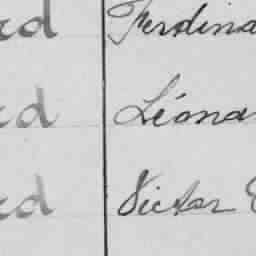 rd Ferdina
rd Léona
rd Victor